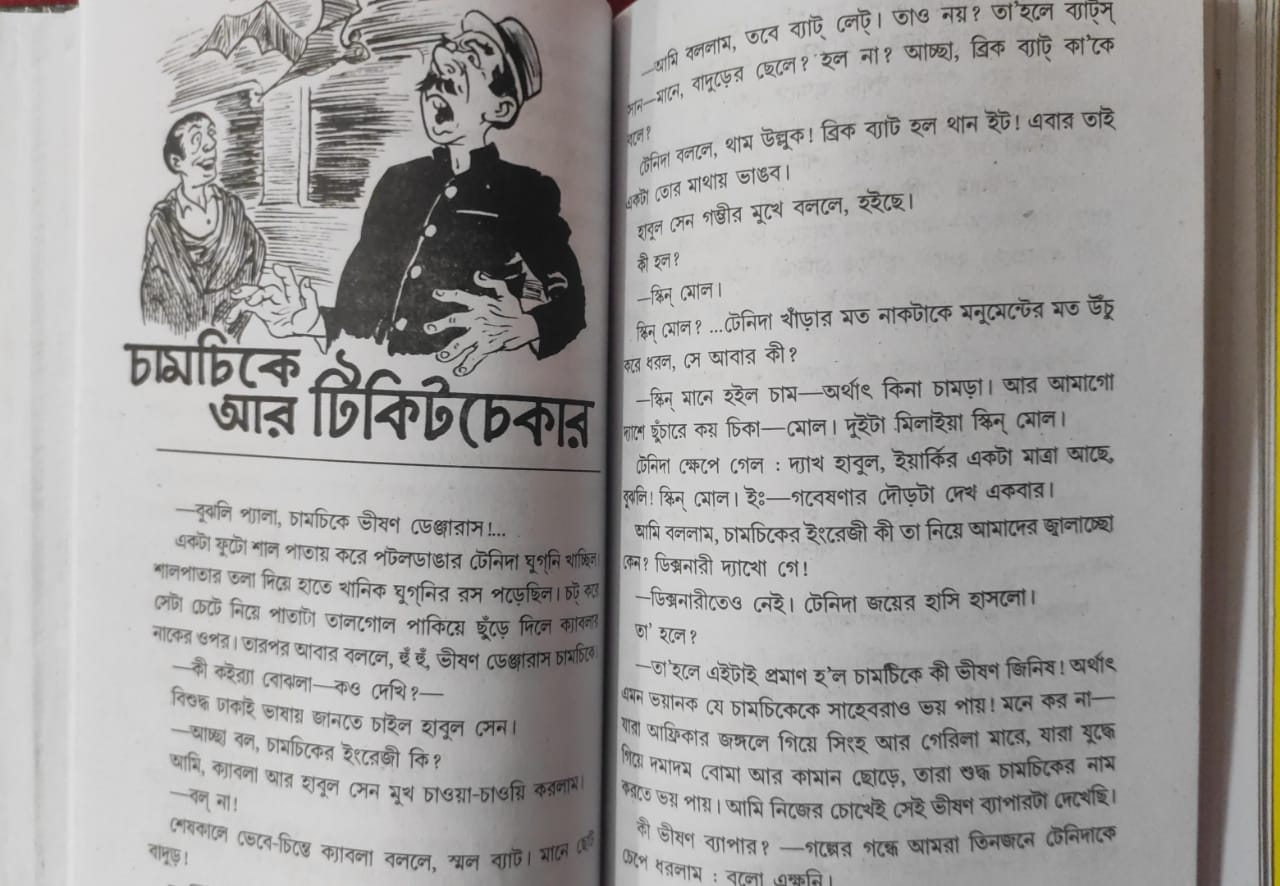 চামচিকে
আর টিকিটচেকার
—বুঝলি প্যালা, চামচিকে ভীষণ ডেঞ্জারাস!...
একটা ফুটো শাল পাতায় করে পটলডাঙার টেনিদা ঘুগ্‌নি খাচ্ছিল।
শালপাতার তলা দিয়ে হাতে খানিক ঘুগ্‌নির রস পড়েছিল। চট্ করে
সেটা চেটে নিয়ে পাতাটা তালগোল পাকিয়ে ছুঁড়ে দিলে ক্যাবলার
নাকের ওপর। তারপর আবার বললে, হুঁ হুঁ, ভীষণ ডেঞ্জারাস চামচিকে।
—কী কইর‍্যা বোঝলা—কও দেখি?—
বিশুদ্ধ ঢাকাই ভাষায় জানতে চাইল হাবুল সেন।
—আচ্ছা বল, চামচিকের ইংরেজী কি?
আমি, ক্যাবলা আর হাবুল সেন মুখ চাওয়া-চাওয়ি করলাম।
—বল্ না!
শেষকালে ভেবে-চিন্তে ক্যাবলা বললে, স্মল ব্যাট। মানে ছোট
বাদুড়!
—আমি বললাম, তবে ব্যাট্ লেট্। তাও নয়? তা'হলে ব্যাট্স্
সান—মানে, বাদুড়ের ছেলে? হল না? আচ্ছা, ব্রিক ব্যাট্ কা'কে
বলে?
টেনিদা বললে, থাম উল্লুক! ব্রিক ব্যাট হল থান ইট! এবার তাই
একটা তোর মাথায় ভাঙব।
হাবুল সেন গম্ভীর মুখে বললে, হইছে।
কী হল?
—স্কিন্ মোল।
স্কিন্ মোল? ...টেনিদা খাঁড়ার মত নাকটাকে মনুমেন্টের মত উঁচু
করে ধরল, সে আবার কী?
—স্কিন্ মানে হইল চাম—অর্থাৎ কিনা চামড়া। আর আমাগো
দ্যাশে ছুঁচারে কয় চিকা—মোল। দুইটা মিলাইয়া স্কিন্ মোল।
টেনিদা ক্ষেপে গেল : দ্যাখ হাবুল, ইয়ার্কির একটা মাত্রা আছে,
বুঝলি! স্কিন্ মোল। ইঃ—গবেষণার দৌড়টা দেখ একবার।
আমি বললাম, চামচিকের ইংরেজী কী তা নিয়ে আমাদের জ্বালাচ্ছো
কেন? ডিক্সনারী দ্যাখো গে!
—ডিক্সনারীতেও নেই। টেনিদা জয়ের হাসি হাসলো।
তা' হলে?
—তা'হলে এইটাই প্রমাণ হ'ল চামচিকে কী ভীষণ জিনিষ! অর্থাৎ
এমন ভয়ানক যে চামচিকেকে সাহেবরাও ভয় পায়! মনে কর না—
যারা আফ্রিকার জঙ্গলে গিয়ে সিংহ আর গেরিলা মারে, যারা যুদ্ধে
গিয়ে দমাদম বোমা আর কামান ছোড়ে, তারা শুদ্ধ চামচিকের নাম
করতে ভয় পায়। আমি নিজের চোখেই সেই ভীষণ ব্যাপারটা দেখেছি।
কী ভীষণ ব্যাপার? —গল্পের গন্ধে আমরা তিনজনে টেনিদাকে
চেপে ধরলাম : বলো এক্ষুনি।